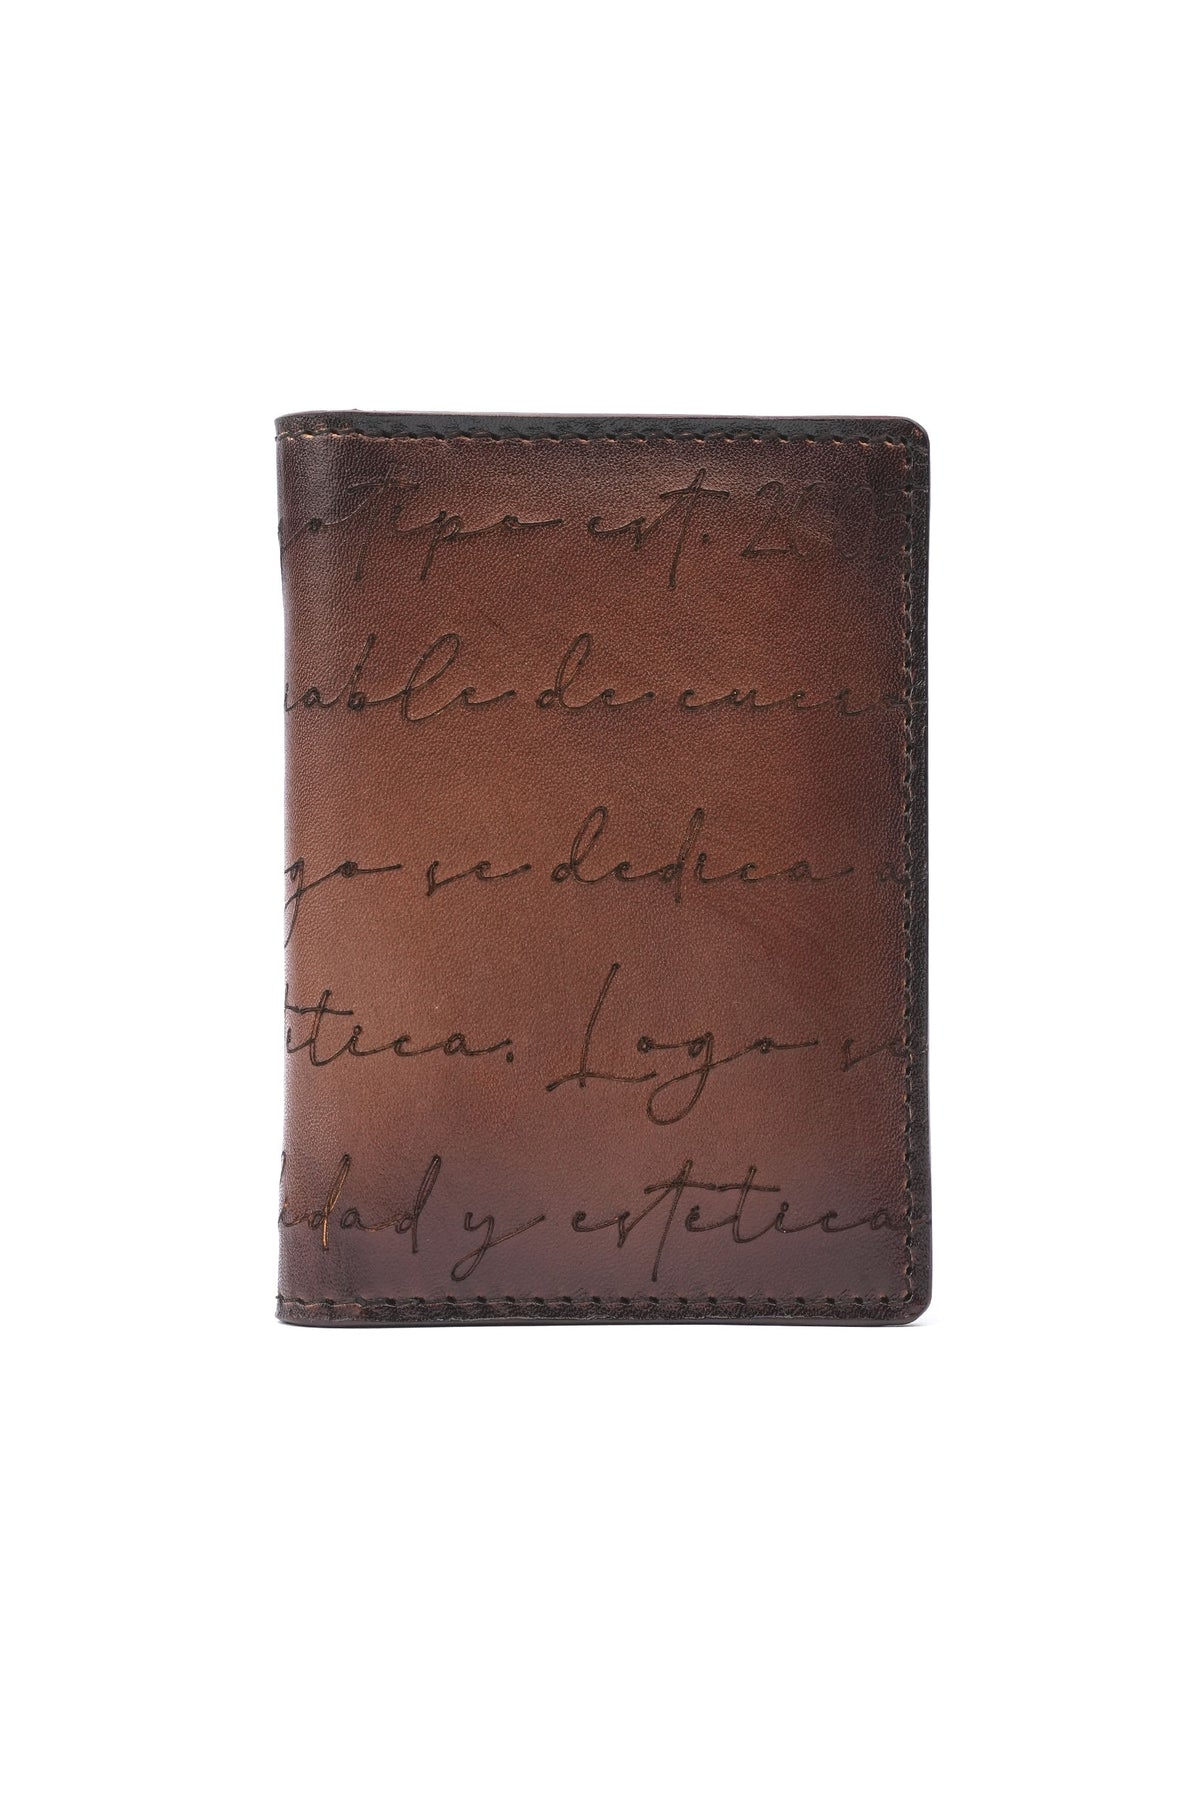 otipo est. 20
able de cuer
go se dedica a
ética. Logo se
lidad y estética